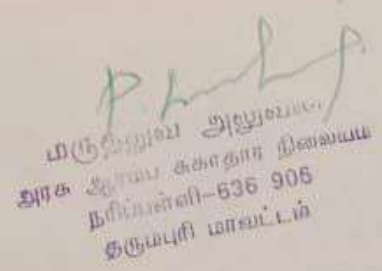 மருத்துவ அலுவலர்,
அரசு ஆரம்ப சுகாதார நிலையம்
நரிப்பள்ளி-636 906
தருமபுரி மாவட்டம்